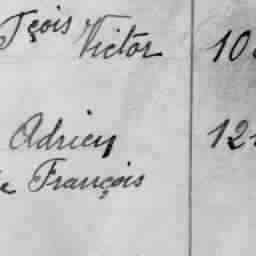 Tçois Victor 10
Adrien 12
François